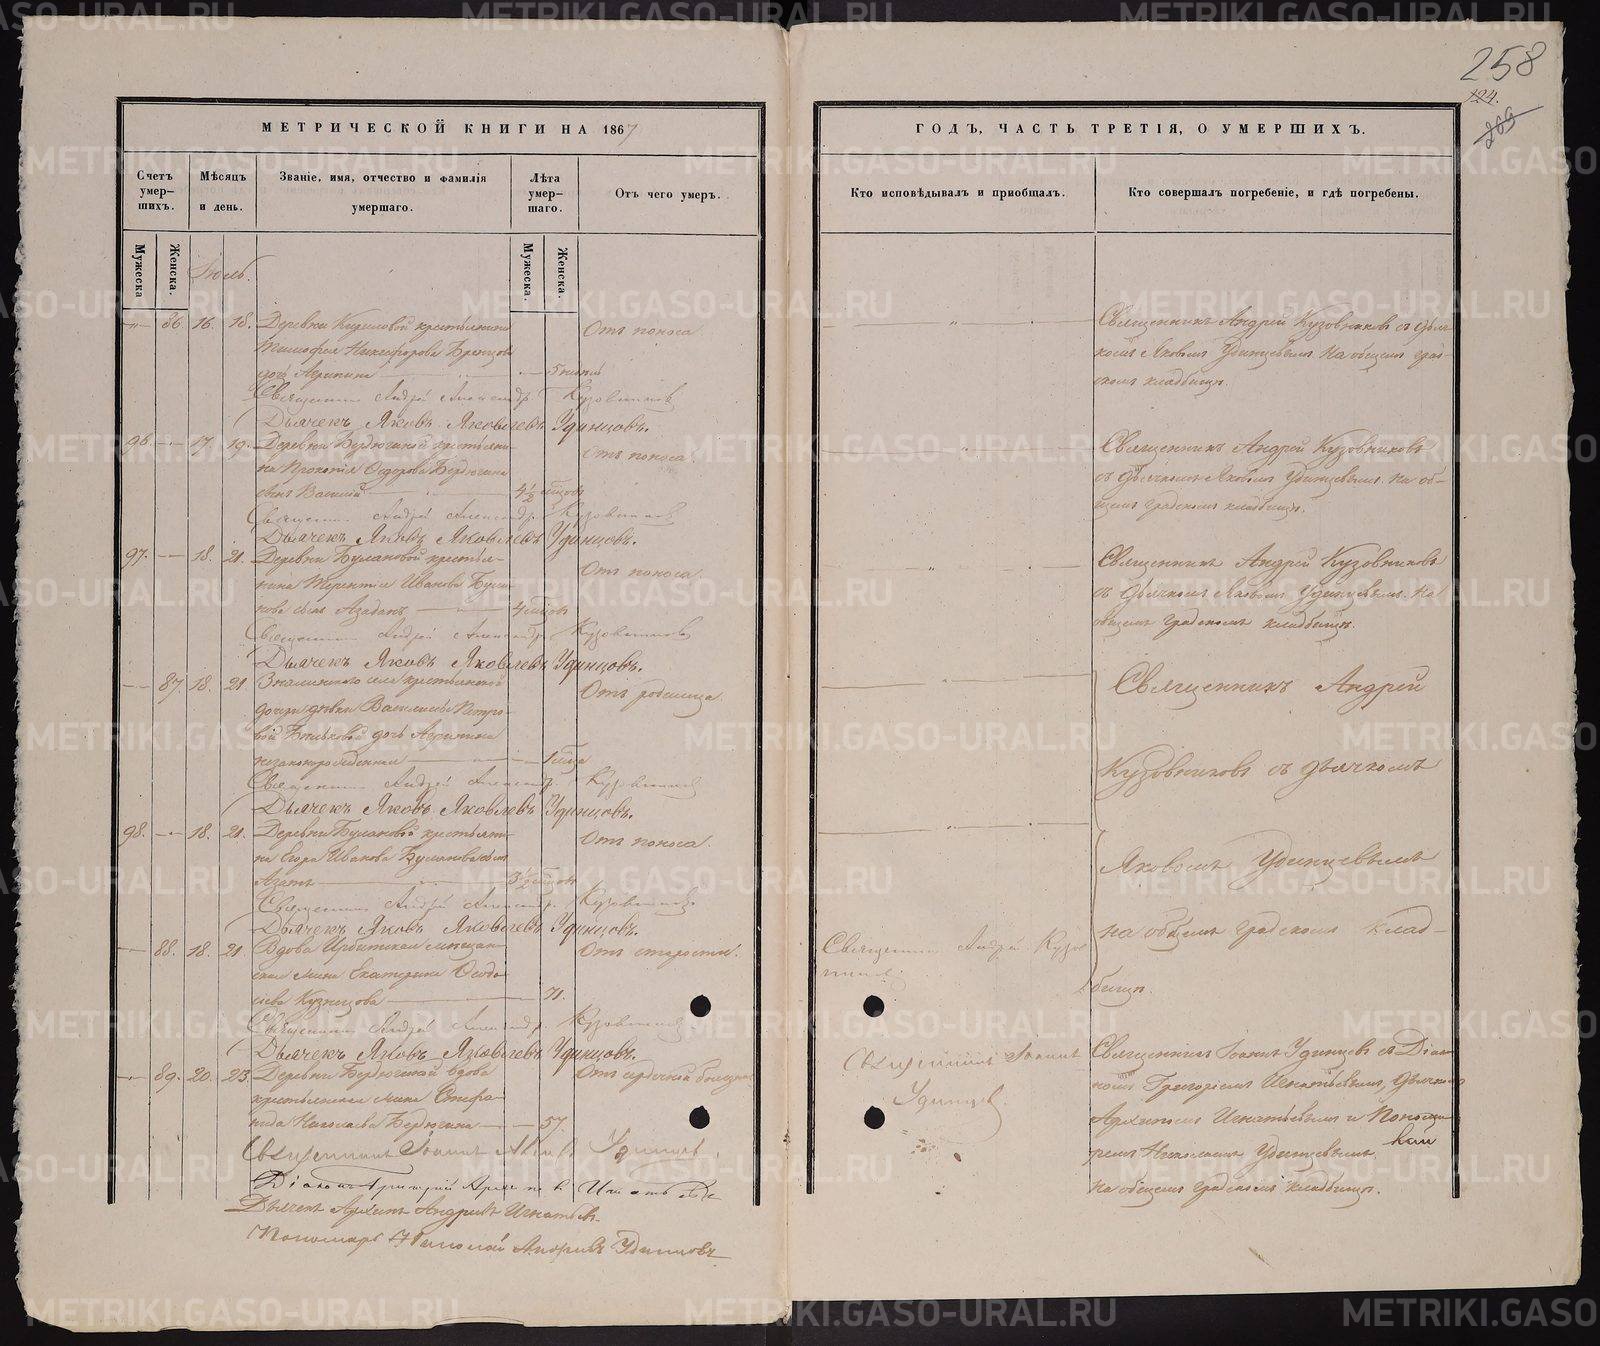 258
124.
269
МЕТРИЧЕСКОЙ КНИГИ НА 1867
Счетъ умер-шихъ.
Мѣсяцъ и день.
Званіе, имя, отчество и фамилія умершаго.
Лѣта умер-шаго.
Отъ чего умеръ.
Мужеска
Женска.
Мужеска.
Женска.
Іюль.
86. 16. 18. Деревни Кириловой крестьянина
Тимофея Никифорова Бренцова
дочь Агрипина 5 Отъ поноса
Священникъ Андрей Александр. Кузовниковъ
Дьячекъ Яковъ Яковлевъ Удинцовъ.
96. 17. 19. Деревни Бердюгиной крестьяни-
на Прокопія Ѳедорова Бердюгина
сынъ Василій 4½ мѣсцовъ Отъ поноса.
Священникъ Андрей Александр. Кузовниковъ
Дьячекъ Яковъ Яковлевъ Удинцовъ.
97. 18. 21. Деревни Булановой крестья-
нина Терентія Иванова Була-
нова сынъ 4 мѣсцовъ Отъ поноса
Священникъ Андрей Александр. Кузовниковъ
Дьячекъ Яковъ Яковлевъ Удинцовъ.
87. 18. 21 Знаменскаго села крестьянской
дочери дѣвки Василисы Петро-
вой дочь Агрипина
незаконнорожденная 1 мѣсца Отъ родимца
Священникъ Андрей Александр. Кузовниковъ
Дьячекъ Яковъ Яковлевъ Удинцовъ.
98. 18. 21. Деревни Булановой крестьяни-
на Егора Иванова Буланова сынъ
3½ мѣсцовъ Отъ поноса.
Священникъ Андрей Александр. Кузовниковъ
Дьячекъ Яковъ Яковлевъ Удинцовъ.
88. 18. 21. Вдова Ирбитская мѣщан-
ская жена Екатерина Ѳеодо-
сіева Кузнецова 71. Отъ старости.
Священникъ Андрей Александр. Кузовниковъ
Дьячекъ Яковъ Яковлевъ Удинцовъ.
89. 20. 23. Деревни Бердюгиной вдова
крестьянская жена Стефа-
нида Николаева Бердюгина 57. Отъ сердечной болезни
Священникъ Іоаннъ Удинцевъ.
Діаконъ Григорій Игнатьевъ
Дьячекъ Архипъ Андреевъ Игнатьевъ.
Пономарь Николай Андреевъ Удинцовъ
ГОДЪ, ЧАСТЬ ТРЕТІЯ, О УМЕРШИХЪ.
Кто исповѣдывалъ и пріобщалъ.
Кто совершалъ погребеніе, и гдѣ погребены.
Священникъ Андрей Кузовниковъ съ дьяч-
комъ Яковомъ Удинцевымъ на общемъ град-
скомъ кладбищѣ.
Священникъ Андрей Кузовниковъ
съ дьячкомъ Яковомъ Удинцевымъ на об-
щемъ градскомъ кладбищѣ.
Священникъ Андрей Кузовниковъ
съ дьячкомъ Яковомъ Удинцевымъ на
общемъ градскомъ кладбищѣ.
Священникъ Андрей
Кузовниковъ съ дьячкомъ
Яковомъ Удинцевымъ
на общемъ градскомъ клад-
бищѣ.
Священникъ Андрей Кузов-
никовъ.
Священникъ Іоаннъ
Удинцевъ.
Священникъ Іоаннъ Удинцевъ съ Діа-
кономъ Григоріемъ Игнатьевымъ, дьячкомъ
Архипомъ Игнатьевымъ и Понома-
ремъ Николаемъ Удинцевымъ
на общемъ градскомъ кладбищѣ.
METRIKI.GASO-URAL.RU